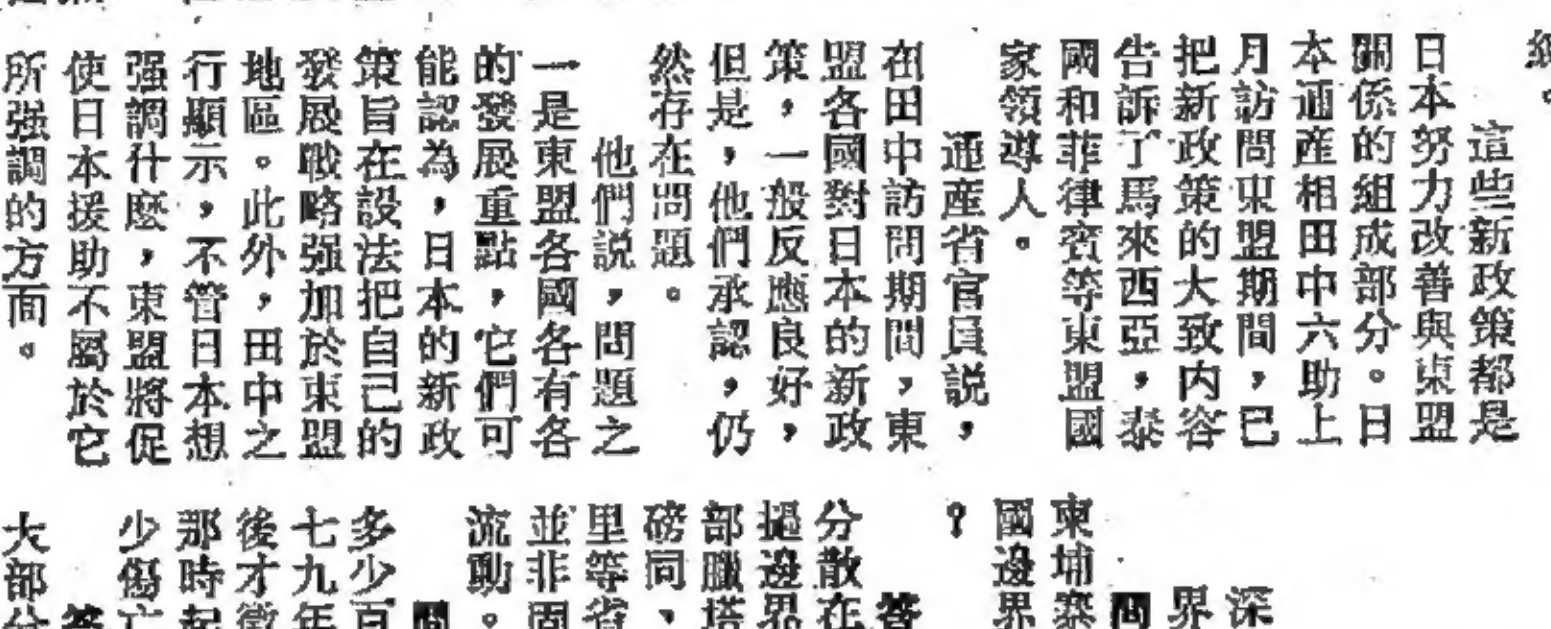 這些新政策都是
日本努力改善與東盟
關係的組成部分。日
本通產相田中六助上
月訪問東盟期間，已
把新政策的大致内容
告訴了馬來西亞，泰
國和菲律賓等東盟國
家領導人。
通產省官員説，
在田中訪問期間，東
盟各國對日本的新政
策，一般反應良好，
但是，他們承認，仍
然存在問題。
他們説，問題之
一是東盟各國各有各
的發展重點，它們可
能認為，日本的新政
策旨在設法把自己的
發展戰略强加於東盟
地區。此外，田中之
行顯示，不管日本想
强調什麽，東盟將促
使日本援助不屬於它
所强調的方面。
深
界
問
柬埔寨
國邊界
？
答
分散在
撾邊界
部臘塔
磅同、
里等省
並非固
流動。
問
多少百
七九年
後才徵
那時起
少傷亡
答
大部分